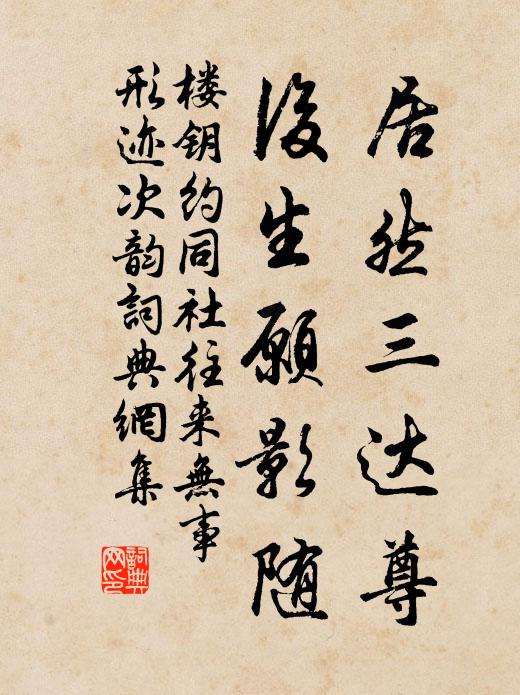 居然三达尊
後生願影随
楼钥约同社往来無事
形迹次韵詞典網集
詞典网印